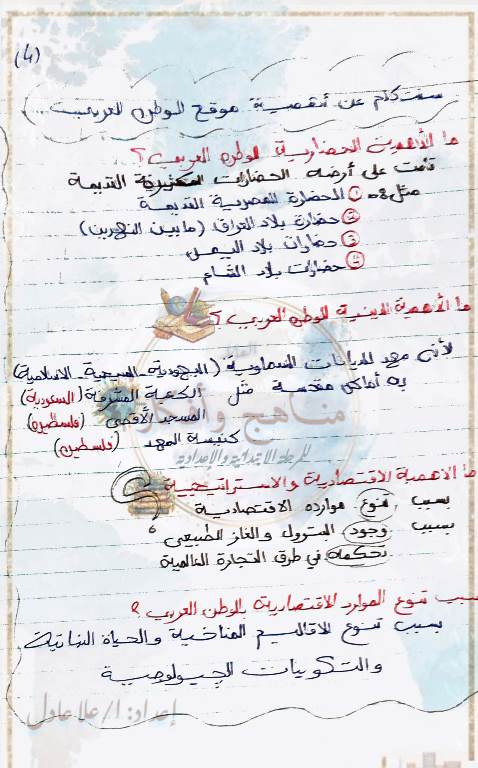 (4)
سنتكلم عن أهمية موقع الوطن العربي...
ما الأهمية الحضارية للوطن العربي؟
قامت على أرضه الحضارات القديمة
مثل: ① الحضارة المصرية القديمة
② حضارة بلاد العراق (ما بين النهرين)
③ حضارات بلاد اليمن
④ حضارات بلاد الشام
ما الأهمية الدينية للوطن العربي؟
لأنه مهد الديانات السماوية (اليهودية - المسيحية - الاسلامية)
به أماكن مقدسة مثل الكعبة المشرفة (السعودية)
المسجد الأقصى (فلسطين)
كنيسة المهد (فلسطين)
مناهج وأفكار
للمرحلة الابتدائية والإعدادية
ما الأهمية الاقتصادية والاستراتيجية
بسبب تنوع موارده الاقتصادية
بسبب وجود البترول والغاز الطبيعي
تحكمه في طرق التجارة العالمية
سبب تنوع الموارد الاقتصادية بالوطن العربي؟
بسبب تنوع الاقاليم المناخية والحياة النباتية
والتكوينات الجيولوجية
إعداد: أ/علا عادل